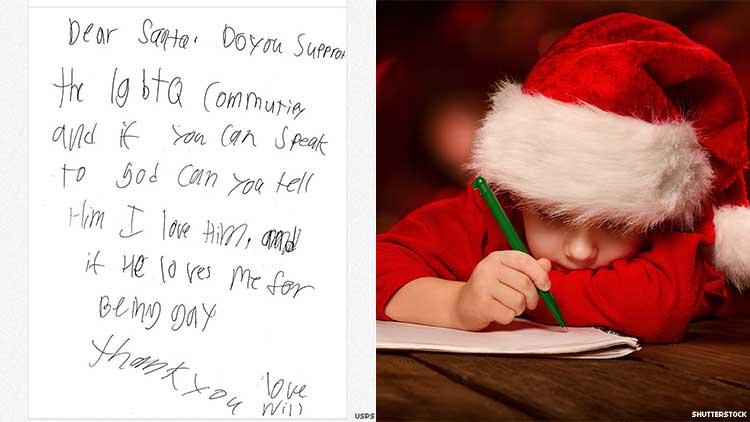 Dear Santa. Do you Support
the lgbtQ Commutiey
and if you Can Speak
to god Can you tell
Him I love Him, and
if He loves me for
Being gay
Thank you love
Will
USPS
SHUTTERSTOCK